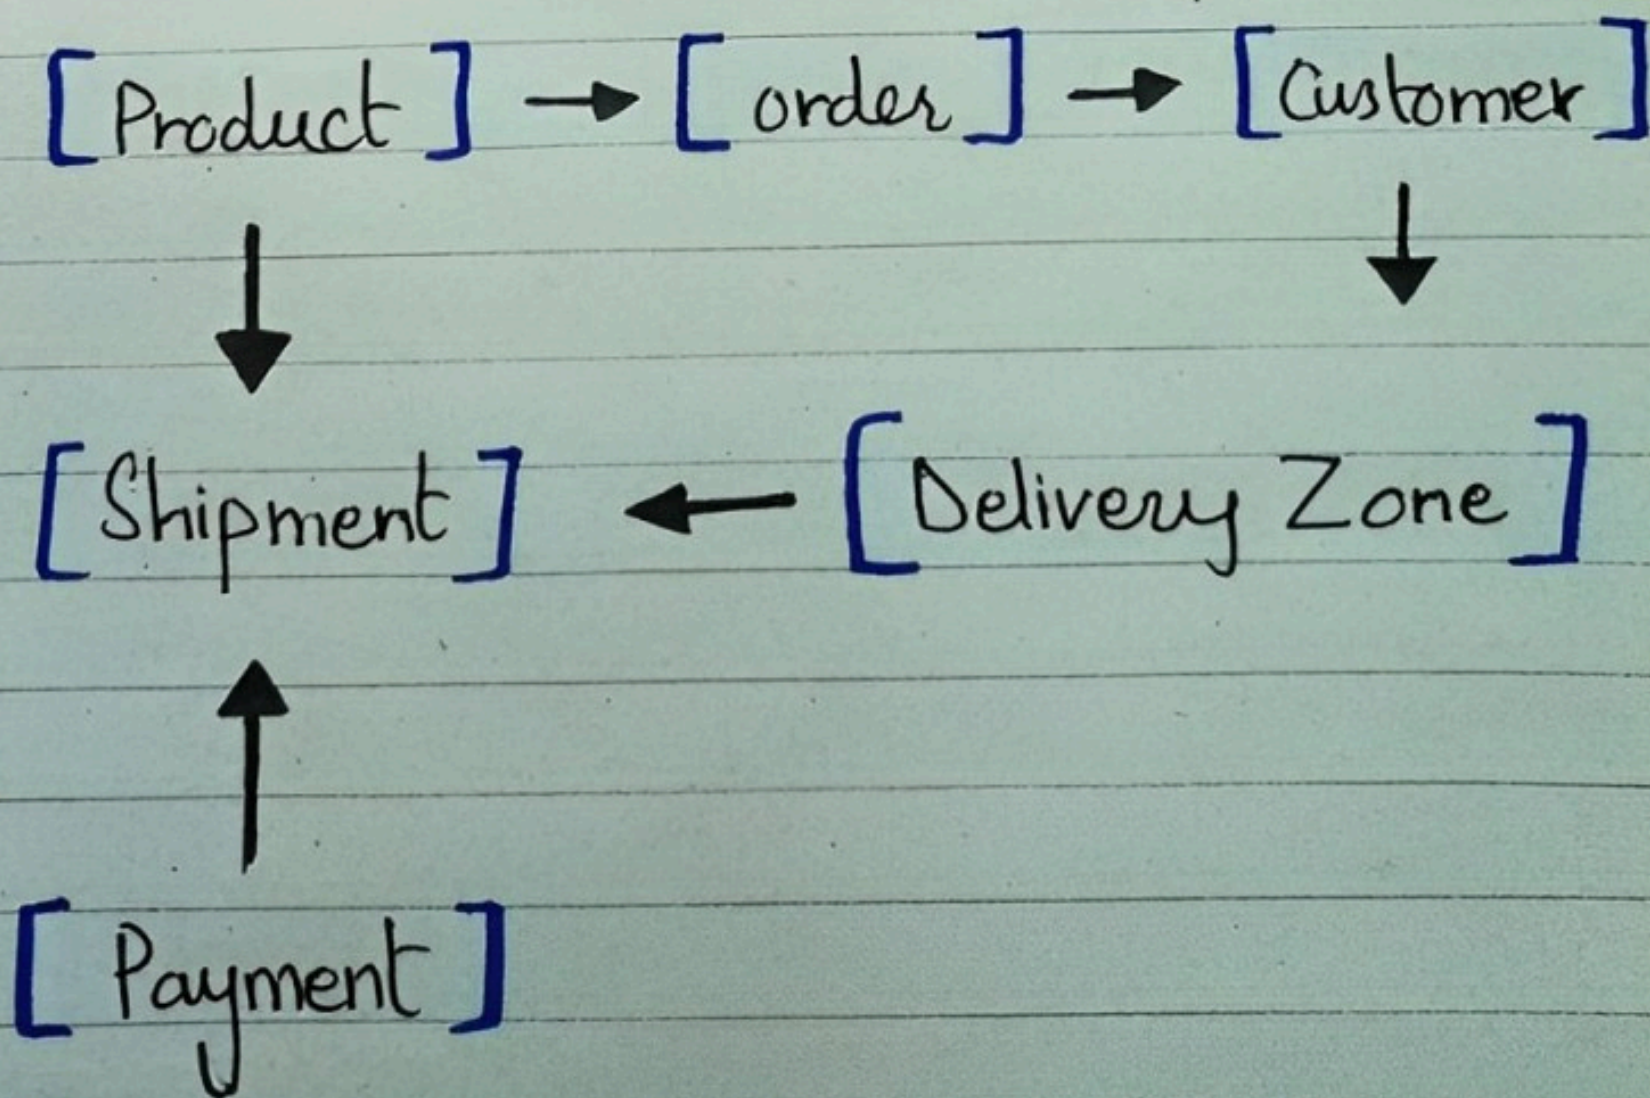 [Product] → [order] → [Customer]
↓ ↓
[Shipment] ← [Delivery Zone]
↑
[Payment]